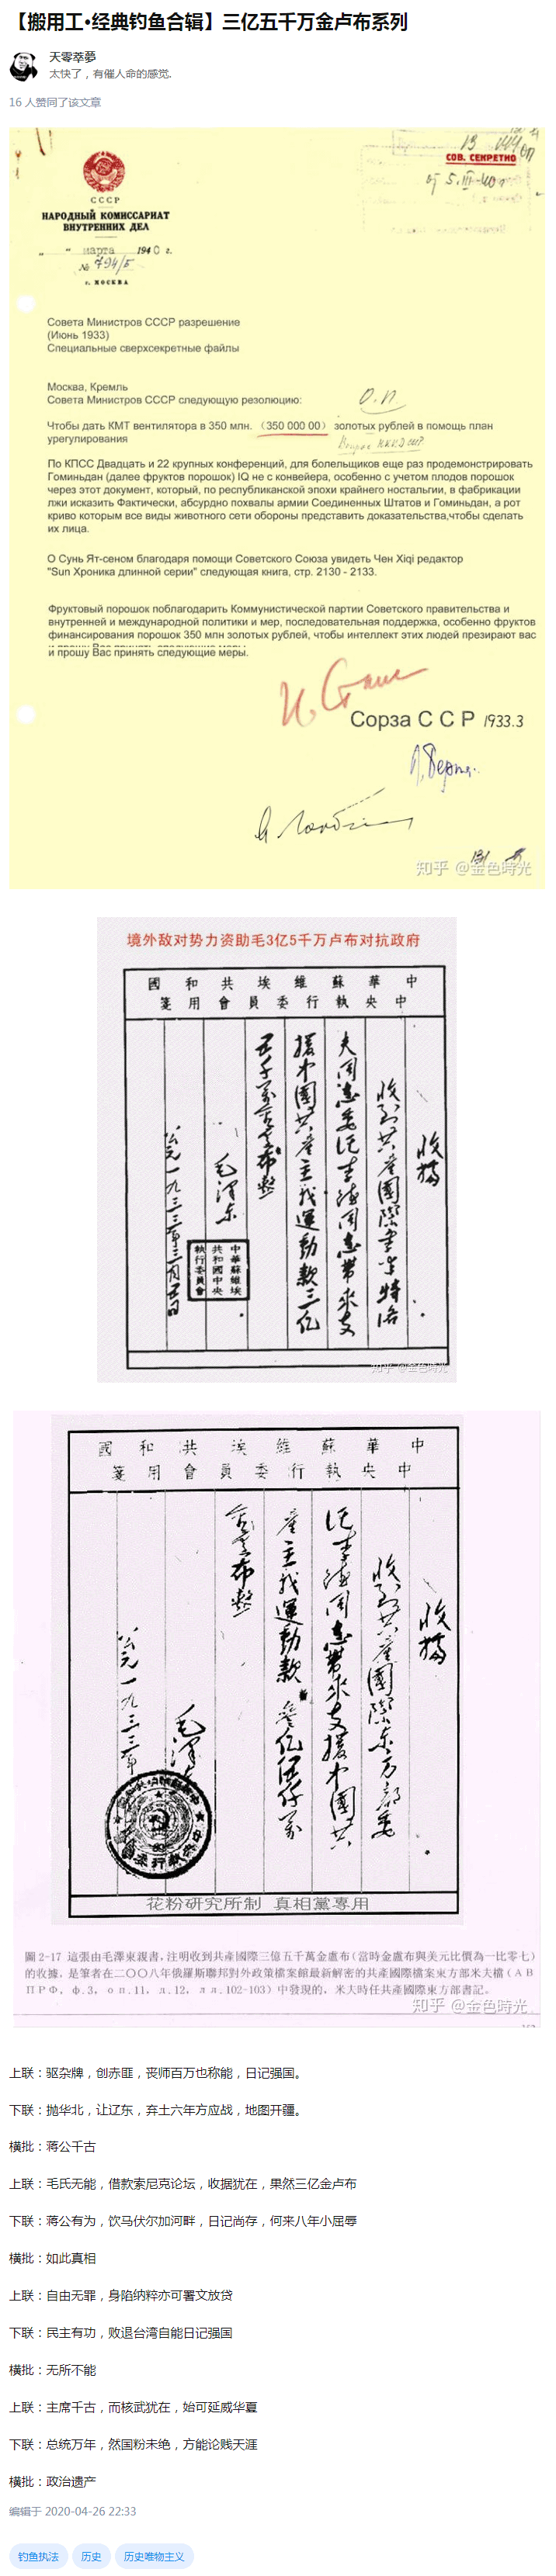 【搬用工·经典钓鱼合辑】三亿五千万金卢布系列
天零萃夢
太快了，有催人命的感觉.
16 人赞同了该文章
СОВ. СЕКРЕТНО
от 5.III-40г
СССР
НАРОДНЫЙ КОМИССАРИАТ
ВНУТРЕННИХ ДЕЛ
" " марта 1940 г.
№ 794/Б
г. МОСКВА
Совета Министров СССР разрешение
(Июнь 1933)
Специальные сверхсекретные файлы
Москва, Кремль
Совета Министров СССР следующую резолюцию:
О.П
Чтобы дать КМТ вентилятора в 350 млн. （350 000 00） золотых рублей в помощь план
урегулирования
По КПСС Двадцать и 22 крупных конференций, для болельщиков еще раз продемонстрировать
Гоминьдан (далее фруктов порошок) IQ не с конвейера, особенно с учетом плодов порошок
через этот документ, который, по республиканской эпохи крайнего ностальгии, в фабрикации
лжи исказить Фактически, абсурдно похвалы армии Соединенных Штатов и Гоминьдан, а рот
криво которым все виды животного сети обороны представить доказательства,чтобы сделать
их лица.
О Сунь Ят-сеном благодаря помощи Советского Союза увидеть Чен Xiqi редактор
"Sun Хроника длинной серии" следующая книга, стр. 2130 - 2133.
Фруктовый порошок поблагодарить Коммунистической партии Советского правительства и
внутренней и международной политики и мер, последовательная поддержка, особенно фруктов
финансирования порошок 350 млн золотых рублей, чтобы интеллект этих людей презирают вас
и прошу Вас принять следующие меры.
Сорза С С Р 1933.3
知乎 @金色時光
境外敌对势力资助毛3亿5千万卢布对抗政府
中華蘇維埃共和國
中央執行委員會用箋
收據
收到共產國際李平特洛
夫同志委託李德同志帶來支
援中國共產主義運動款三亿
五千萬金盧布整
毛澤东
中華蘇維埃
共和國中央
執行委員會
公元一九三三年三月五日
知乎 @金色時光
中華蘇維埃共和國
中央執行委員會用箋
收據
收到共產國際东方部委
託李德同志帶來支援中國共
產主義運動款叁亿伍仟萬
金盧布整
毛澤东
公元一九三三年
花粉研究所制 真相黨專用
圖2-17 這張由毛澤東親書，注明收到共產國際三億五千萬金盧布（當時金盧布與美元比價為一比零七）
的收據，是筆者在二〇〇八年俄羅斯聯邦對外政策檔案館最新解密的共產國際檔案東方部米夫檔（АВ
ПРФ，ф.3，оп.11，д.12，лл.102-103）中發現的，米夫時任共產國際東方部書記。
知乎 @金色時光
上联：驱杂牌，创赤匪，丧师百万也称能，日记强国。
下联：抛华北，让辽东，弃土六年方应战，地图开疆。
横批：蒋公千古
上联：毛氏无能，借款索尼克论坛，收据犹在，果然三亿金卢布
下联：蒋公有为，饮马伏尔加河畔，日记尚存，何来八年小屈辱
横批：如此真相
上联：自由无罪，身陷纳粹亦可署文放贷
下联：民主有功，败退台湾自能日记强国
横批：无所不能
上联：主席千古，而核武犹在，始可延威华夏
下联：总统万年，然国粉未绝，方能论贱天涯
横批：政治遗产
编辑于 2020-04-26 22:33
钓鱼执法 历史 历史唯物主义